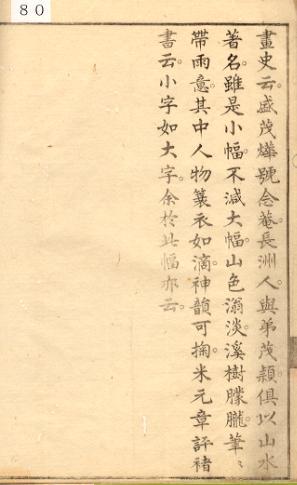 80
畫史云。盛茂燁號念菴。長洲人。與弟茂穎。俱以山水
著名。雖是小幅。不減大幅。山色滃淡。溪樹朦朧。筆〻
帶雨意。其中人物蓑衣如滴。神韻可掬。米元章評褚
書云。小字如大字。余於此幅亦云。